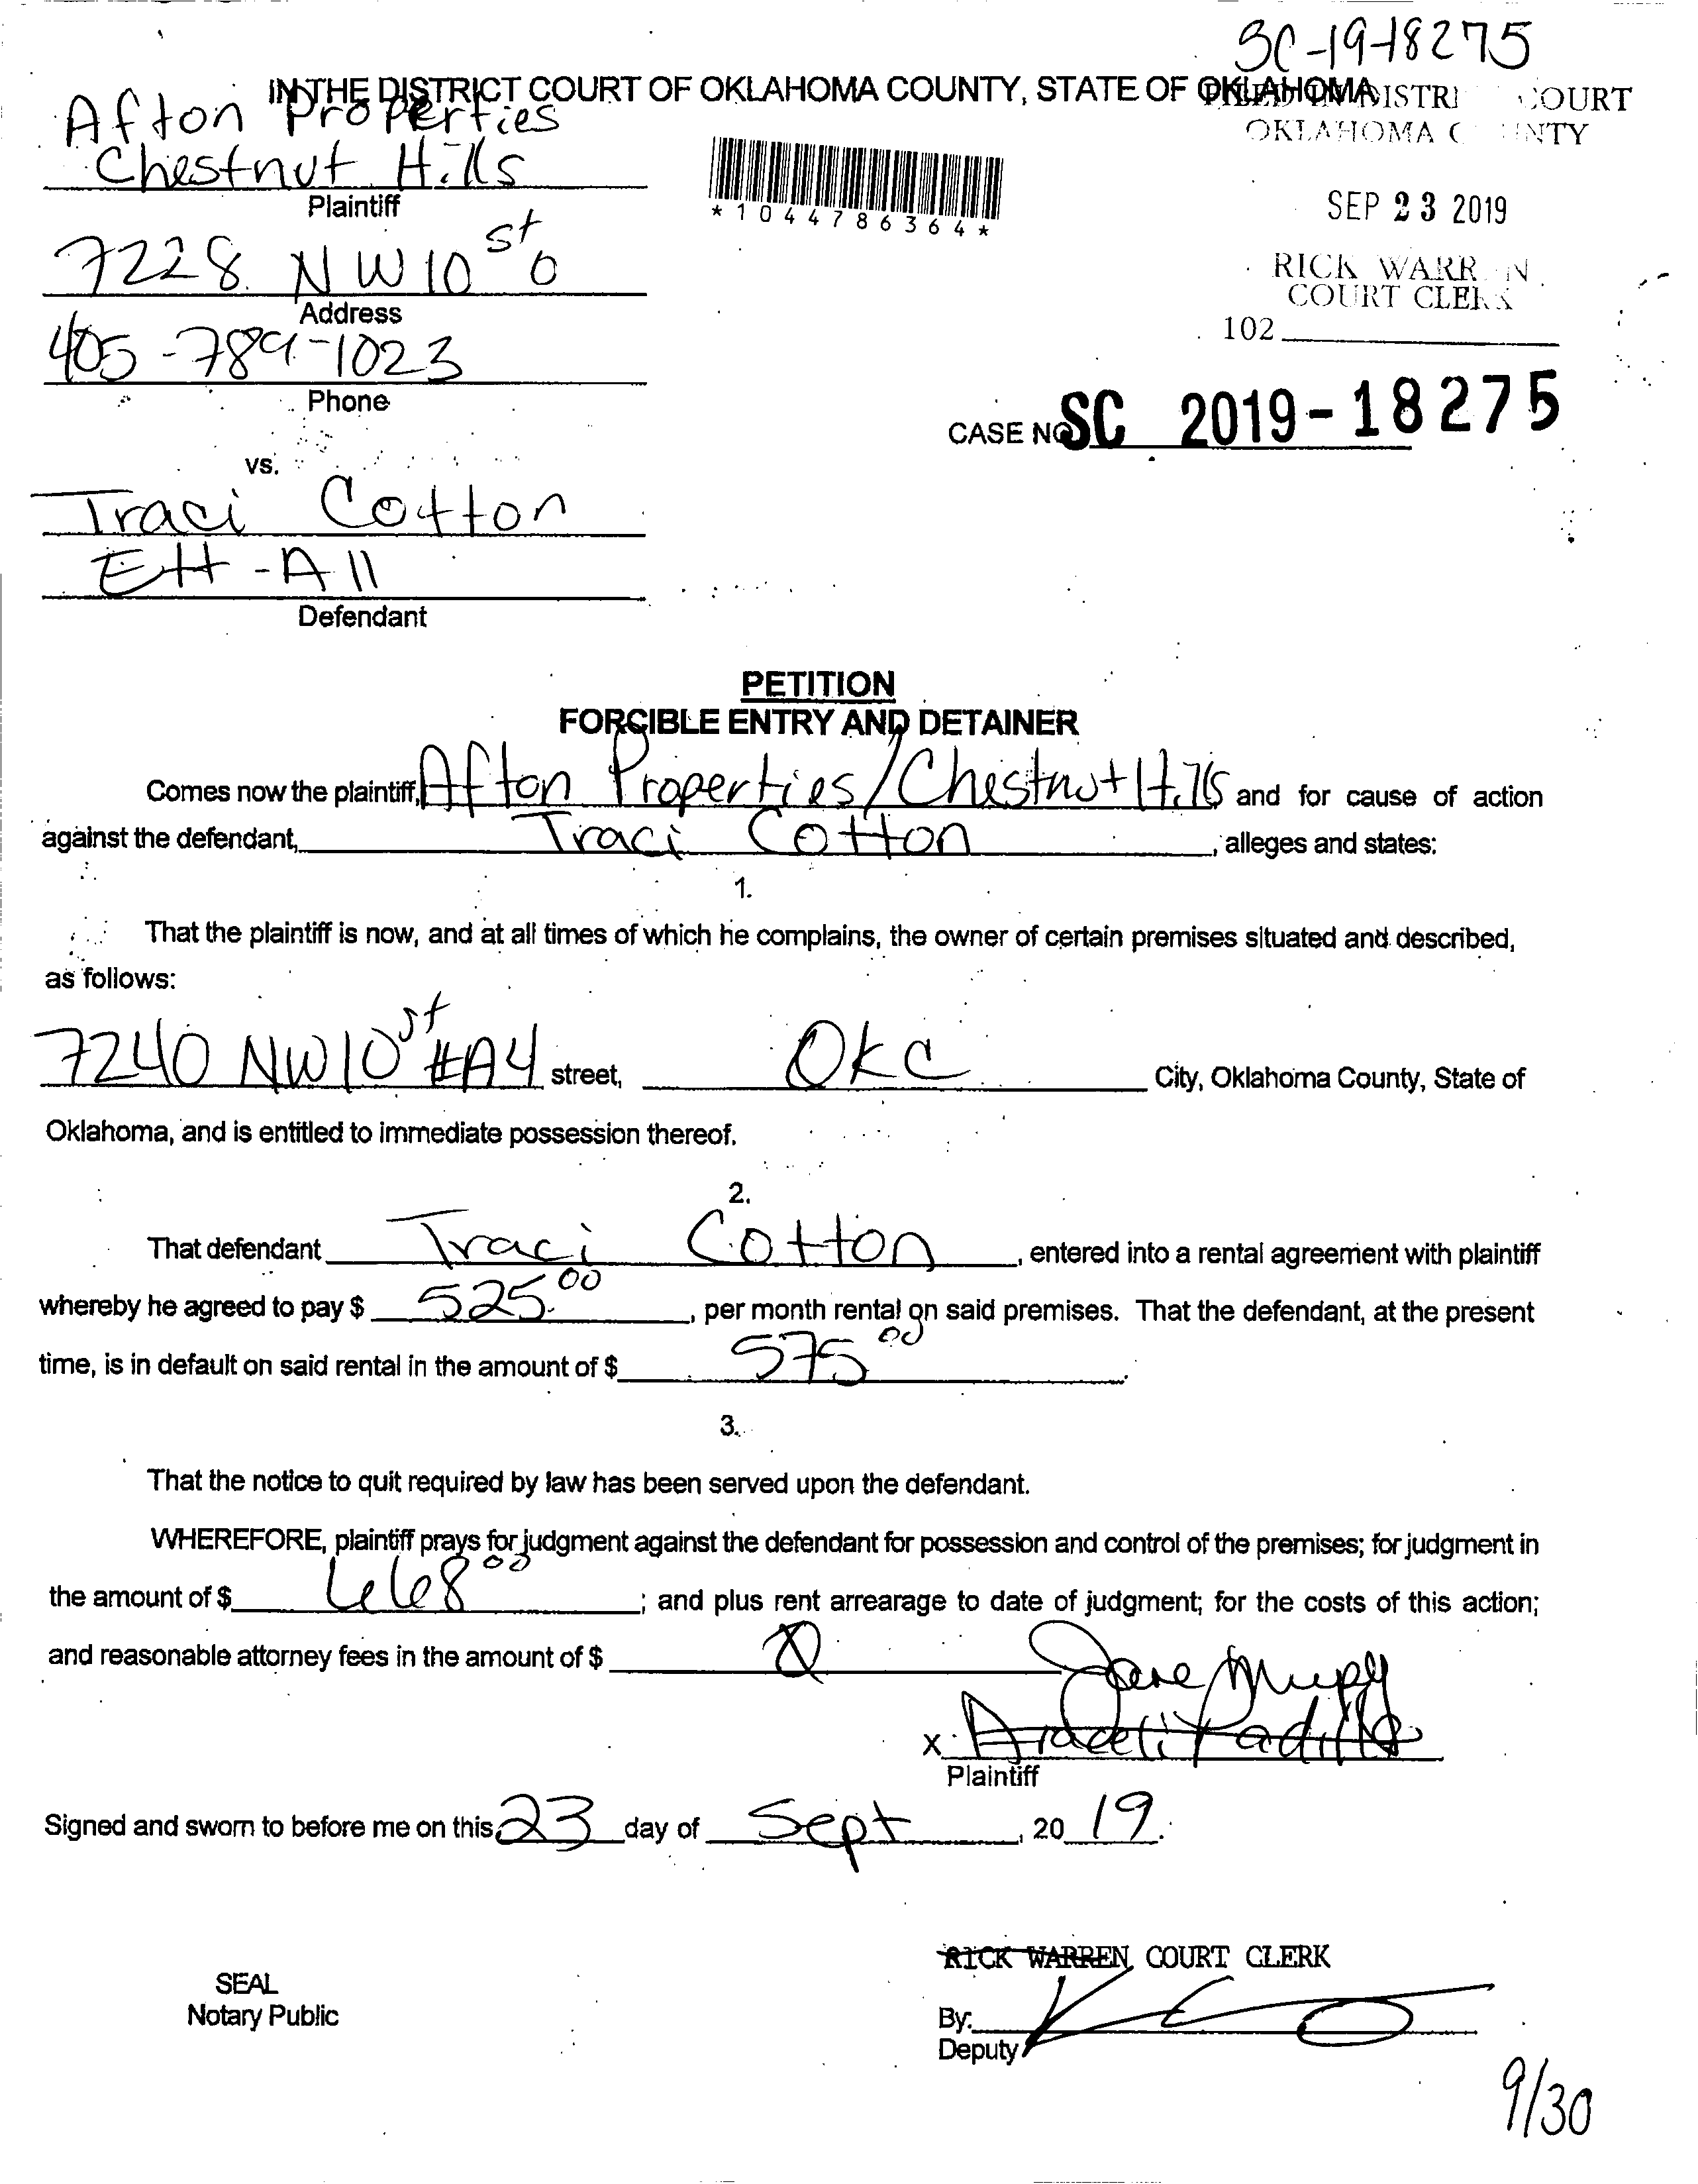 SC-19-18275
IN THE DISTRICT COURT OF OKLAHOMA COUNTY, STATE OF OKLAHOMA
Afton Properties
COURT
OKLAHOMA
Chestnut Hills
Plaintiff
*1044786364*
SEP 23 2019
7228 NW 10 St
Address
RICK
COURT CLERK
405-789-1023
102
Phone
CASE NO SC 2019-18275
vs.
Traci Cotton
Et-All
Defendant
PETITION
FORCIBLE ENTRY AND DETAINER
Comes now the plaintiff, Afton Properties/Chestnut Hills and for cause of action
against the defendant, Traci Cotton, alleges and states:
1.
That the plaintiff is now, and at all times of which he complains, the owner of certain premises situated and described,
as follows:
7240 NW 10 st #A4 street, OKC City, Oklahoma County, State of
Oklahoma, and is entitled to immediate possession thereof.
2.
That defendant Traci Cotton, entered into a rental agreement with plaintiff
whereby he agreed to pay $ 525.00, per month rental on said premises. That the defendant, at the present
time, is in default on said rental in the amount of $ 575 00.
3.
That the notice to quit required by law has been served upon the defendant.
WHEREFORE, plaintiff prays for judgment against the defendant for possession and control of the premises; for judgment in
the amount of $ 668 00; and plus rent arrearage to date of judgment; for the costs of this action;
and reasonable attorney fees in the amount of $
X Araceli Padilla
Plaintiff
Signed and sworn to before me on this 23 day of Sept, 20 19.
RICK WARREN, COURT CLERK
SEAL
Notary Public
By:
Deputy
9/30